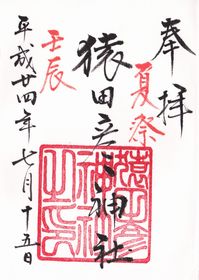 奉拝
夏祭
猿田彦神社
壬辰
平成廿四年七月十五日
猿田彦
神社
之印